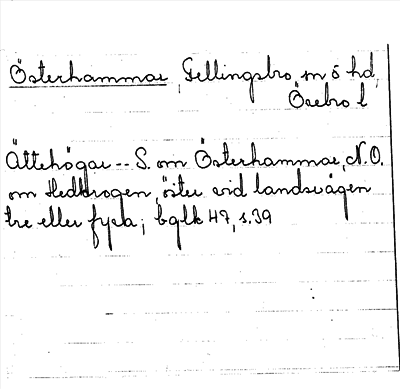 Österhammar, Fellingsbro sn ö hd,
Örebro l
Ättehögar -- S. om Österhammar, N.O.
om Hedkrogen, öster vid landsvägen
tre eller fyra; bglk 47, s. 39